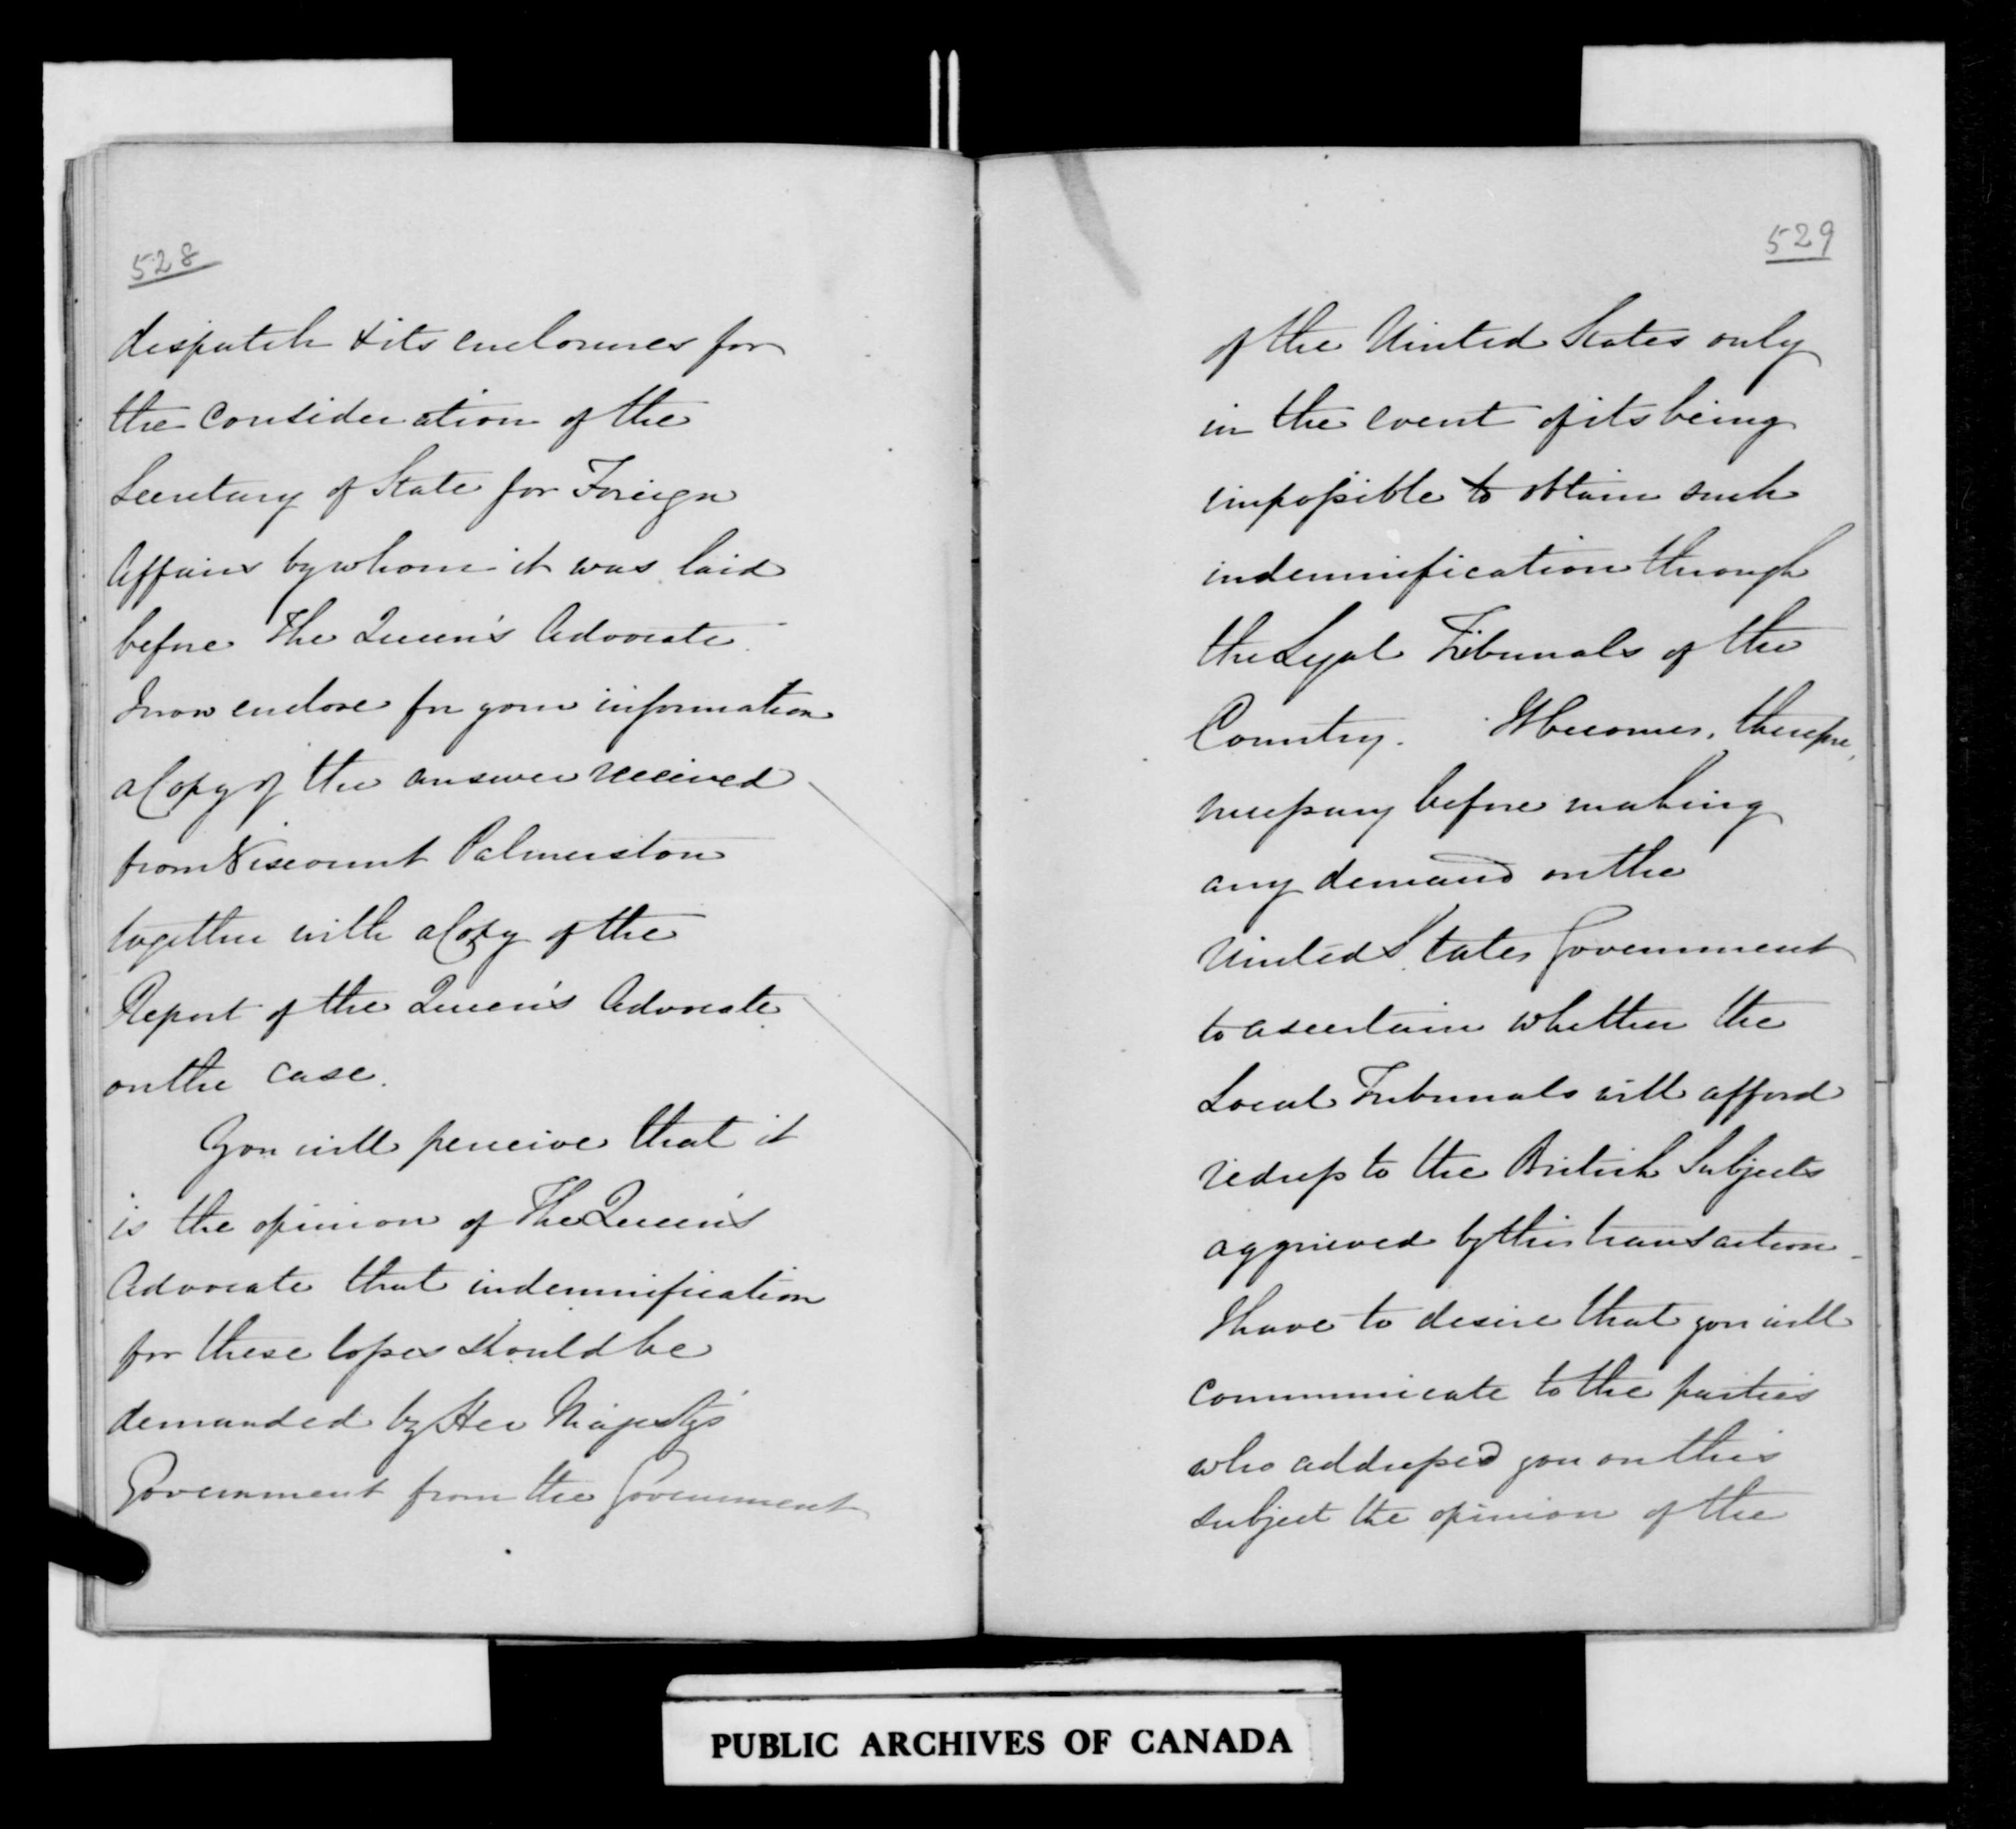 528
dispatch & its enclosures for
the consideration of the
Secretary of State for Foreign
Affairs by whom it was laid
before The Queen's Advocate.
I now enclose for your information
a Copy of the answer received
from Viscount Palmerston
together with a Copy of the
Report of the Queen's Advocate
on the case.
You will perceive that it
is the opinion of The Queen's
Advocate that indemnification
for these losses should be
demanded by Her Majesty's
Government from the Government
529
of the United States only
in the event of its being
impossible to obtain such
indemnification through
the Legal Tribunals of the
Country. It becomes, therefore,
necessary before making
any demand on the
United States Government
to ascertain whether the
Local Tribunals will afford
redress to the British Subjects
aggrieved by this transaction.
I have to desire that you will
communicate to the parties
who addressed you on this
subject the opinion of the
PUBLIC ARCHIVES OF CANADA